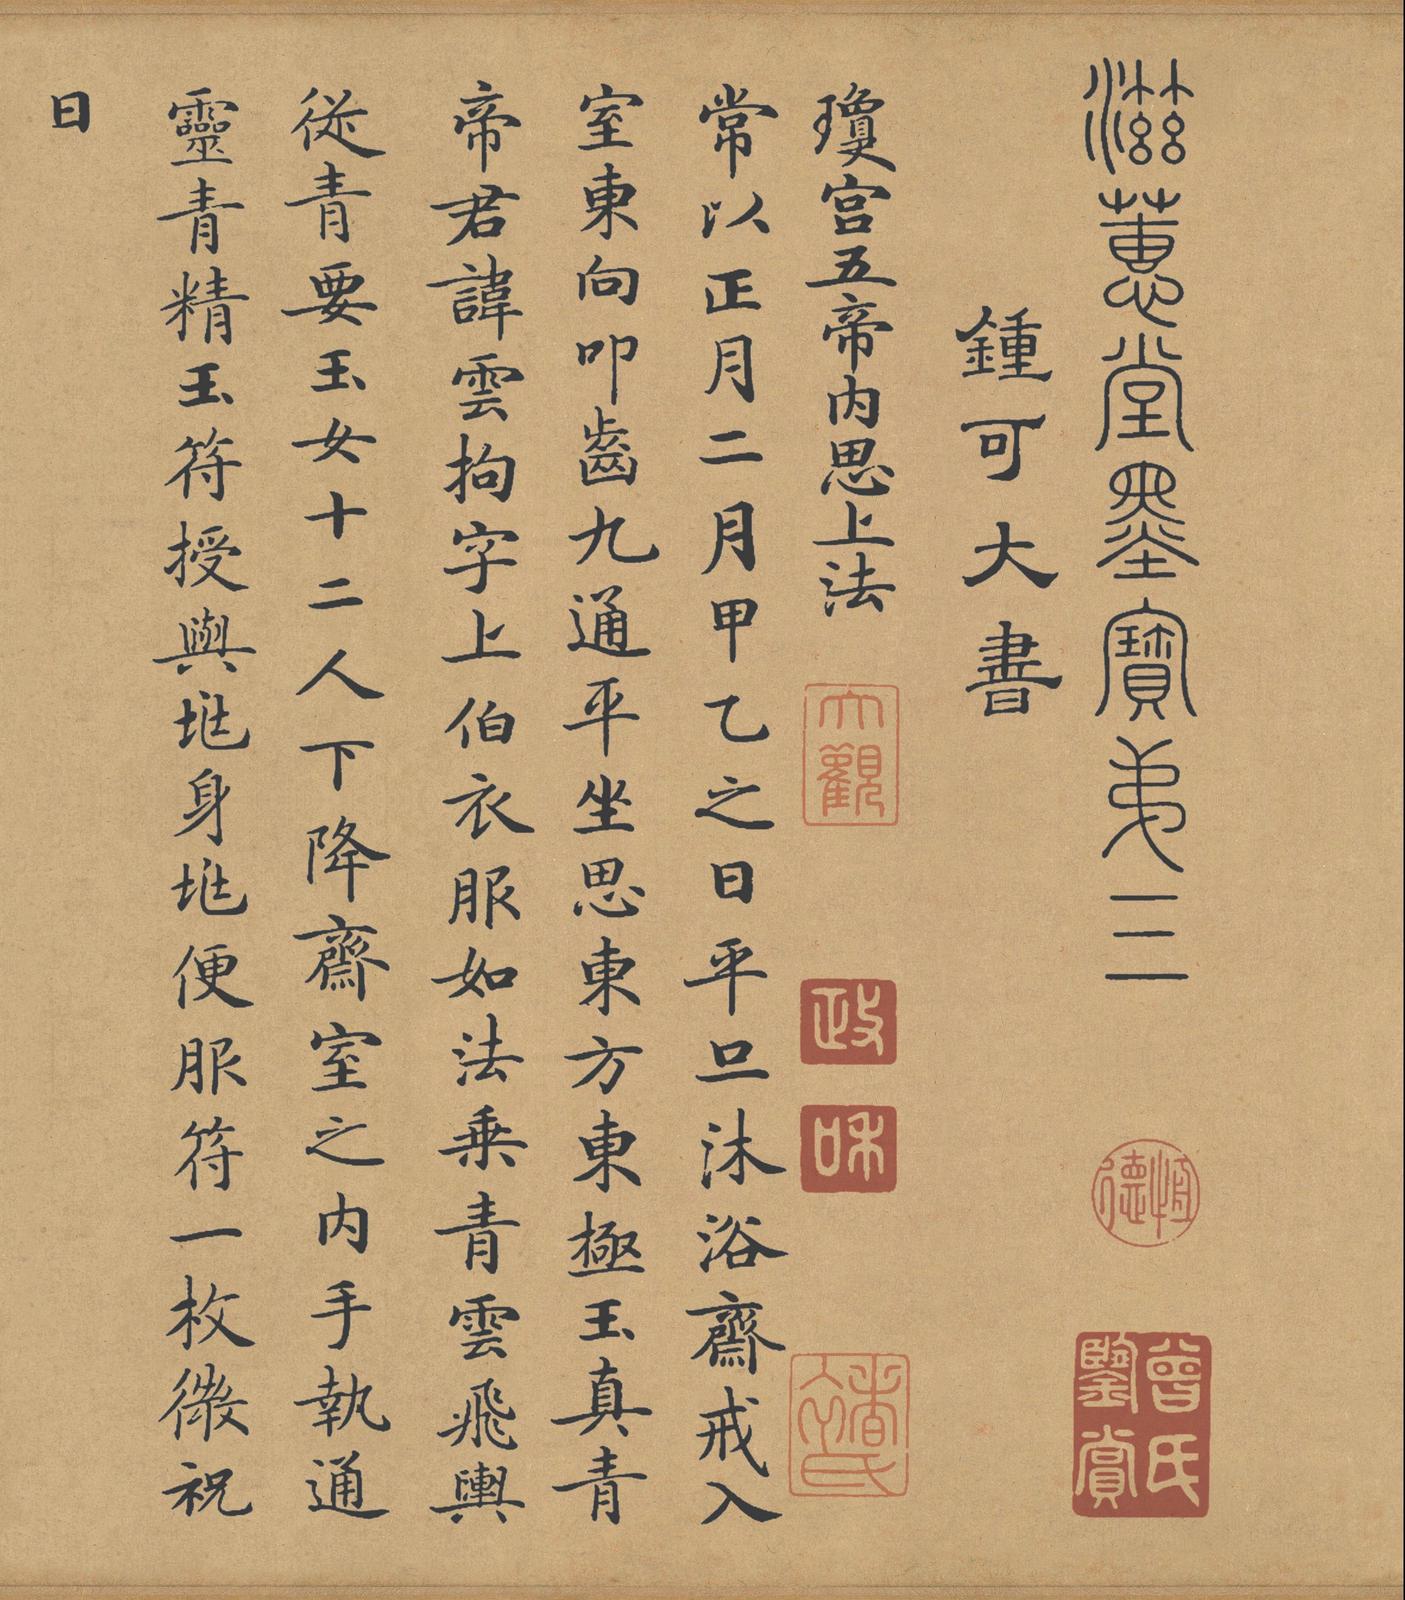 滋蕙堂墨寶弟三
恒德
曾氏鑒賞
鍾可大書
瓊宮五帝内思上法
大觀
政
和
常以正月二月甲乙之日平旦沐浴齋戒入
室東向叩齒九通平坐思東方東極玉真青
帝君諱雲拘字上伯衣服如法乗青雲飛輿
從青要玉女十二人下降齋室之内手執通
靈青精玉符授與兆身兆便服符一枚微祝
曰